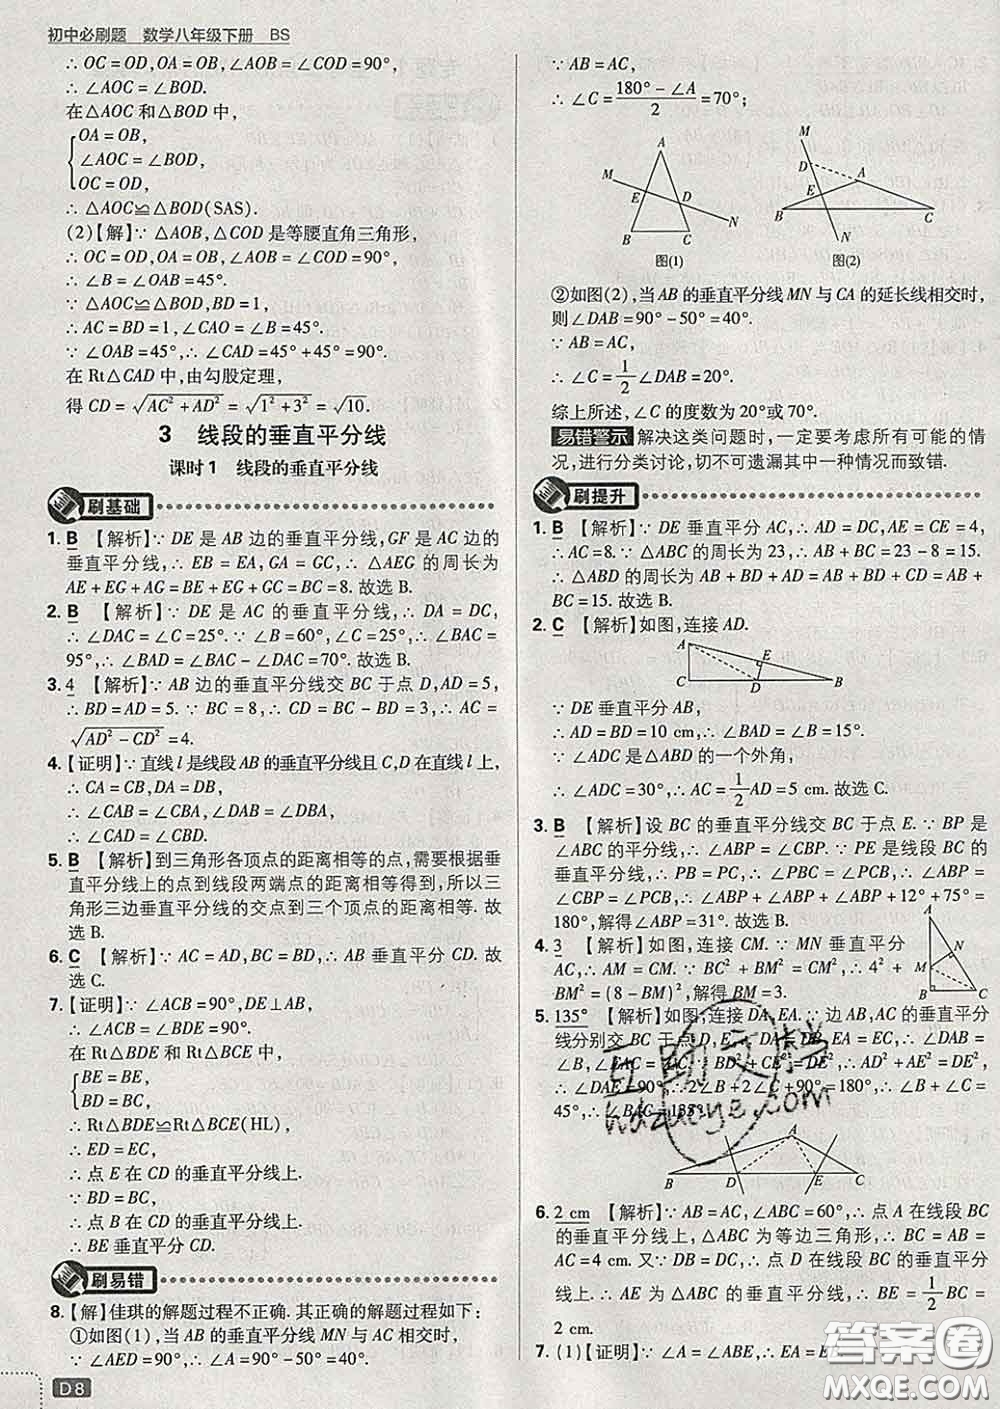 初中必刷题 数学八年级下册 BS
∴ OC=OD,OA=OB,∠AOB=∠COD=90°,
∴ ∠AOC=∠BOD.
在△AOC 和△BOD 中,
OA=OB,
∠AOC=∠BOD,
OC=OD,
∴ △AOC≌△BOD(SAS).
(2)【解】∵ △AOB,△COD 是等腰直角三角形,
∴ OC=OD,OA=OB,∠AOB=∠COD=90°,
∴ ∠B=∠OAB=45°.
∵ △AOC≌△BOD,BD=1,
∴ AC=BD=1,∠CAO=∠B=45°.
∵ ∠OAB=45°,∴ ∠CAD=45°+45°=90°.
在 Rt△CAD 中,由勾股定理,
得 CD=√(AC²+AD²)=√(1²+3²)=√10.
3 线段的垂直平分线
课时1 线段的垂直平分线
刷基础
1. B 【解析】∵ DE 是 AB 边的垂直平分线,GF 是 AC 边的
垂直平分线,∴ EB=EA,GA=GC,∴ △AEG 的周长为
AE+EG+AG=BE+EG+GC=BC=8. 故选 B.
2. B 【解析】∵ DE 是 AC 的垂直平分线,∴ DA=DC,
∴ ∠DAC=∠C=25°. ∵ ∠B=60°,∠C=25°,∴ ∠BAC=
95°,∴ ∠BAD=∠BAC-∠DAC=70°. 故选 B.
3. 4 【解析】∵ AB 边的垂直平分线交 BC 于点 D,AD=5,
∴ BD=AD=5. ∵ BC=8,∴ CD=BC-BD=3,∴ AC=
√(AD²-CD²)=4.
4.【证明】∵ 直线 l 是线段 AB 的垂直平分线且 C,D 在直线 l 上,
∴ CA=CB,DA=DB,
∴ ∠CAB=∠CBA,∠DAB=∠DBA,
∴ ∠CAD=∠CBD.
5. B 【解析】到三角形各顶点的距离相等的点,需要根据垂
直平分线上的点到线段两端点的距离相等得到,所以三
角形三边垂直平分线的交点到三个顶点的距离相等. 故
选 B.
6. C 【解析】∵ AC=AD,BC=BD,∴ AB 垂直平分 CD. 故
选 C.
7.【证明】∵ ∠ACB=90°,DE⊥AB,
∴ ∠ACB=∠BDE=90°.
在 Rt△BDE 和 Rt△BCE 中,
BE=BE,
BD=BC,
∴ Rt△BDE≌Rt△BCE(HL),
∴ ED=EC,
∴ 点 E 在 CD 的垂直平分线上.
∵ BD=BC,
∴ 点 B 在 CD 的垂直平分线上.
∴ BE 垂直平分 CD.
刷易错
8.【解】佳琪的解题过程不正确. 其正确的解题过程如下:
①如图(1),当 AB 的垂直平分线 MN 与 AC 相交时,
∵ ∠AED=90°,∴ ∠A=90°-50°=40°.
D8
∵ AB=AC,
∴ ∠C=(180°-∠A)/2=70°;
A
M
E
D
N
B
C
图(1)
M
D
A
E
B
C
N
图(2)
②如图(2),当 AB 的垂直平分线 MN 与 CA 的延长线相交时,
则∠DAB=90°-50°=40°.
∵ AB=AC,
∴ ∠C=1/2∠DAB=20°.
综上所述,∠C 的度数为 20°或 70°.
易错警示 解决这类问题时,一定要考虑所有可能的情
况,进行分类讨论,切不可遗漏其中一种情况而致错.
刷提升
1. B 【解析】∵ DE 垂直平分 AC,∴ AD=DC,AE=CE=4,
∴ AC=8. ∵ △ABC 的周长为 23,∴ AB+BC=23-8=15.
∴ △ABD 的周长为 AB+BD+AD=AB+BD+CD=AB+
BC=15. 故选 B.
2. C 【解析】如图,连接 AD.
A
E
C
D
B
∵ DE 垂直平分 AB,
∴ AD=BD=10 cm,∴ ∠BAD=∠B=15°.
∵ ∠ADC 是△ABD 的一个外角,
∴ ∠ADC=30°,∴ AC=1/2AD=5 cm. 故选 C.
3. B 【解析】设 BC 的垂直平分线交 BC 于点 E. ∵ BP 是
∠ABC 的平分线,∴ ∠ABP=∠CBP. ∵ PE 是线段 BC 的
垂直平分线,∴ PB=PC,∴ ∠CBP=∠PCB,∴ ∠ABP=
∠CBP=∠PCB,∴ ∠ABP+∠ABP+∠ABP+12°+75°=
180°,解得∠ABP=31°. 故选 B.
4. 3 【解析】如图,连接 CM. ∵ MN 垂直平分
AC,∴ AM=CM. ∵ BC²+BM²=CM²,∴ 4²+
BM²=(8-BM)²,解得 BM=3.
A
N
M
B
C
5. 135° 【解析】如图,连接 DA,EA. ∵ 边 AB,AC 的垂直平
分线分别交 BC 于点 D,E,∴ DA=DB,EA=EC,∴ ∠B=
∠DAB,∠EAC=∠C. ∵ BD²+CE²=DE²,∴ AD²+AE²=DE²,
∴ ∠DAE=90°,∴ 2∠B+2∠C+90°=180°,∴ ∠B+∠C=
45°,∴ ∠BAC=135°.
A
B
D
E
C
6. 2 cm 【解析】∵ AB=AC,∠ABC=60°,∴ 点 A 在线段 BC
的垂直平分线上,△ABC 为等边三角形,∴ BC=AB=
AC=4 cm. 又∵ DB=DC,∴ 点 D 在线段 BC 的垂直平分
线上. ∴ AE 为△ABC 的垂直平分线,∴ BE=1/2BC=
2 cm.
7. (1)【证明】∵ △ABE
互助文档
hdzuoye.com
答案圈
MXQE.COM